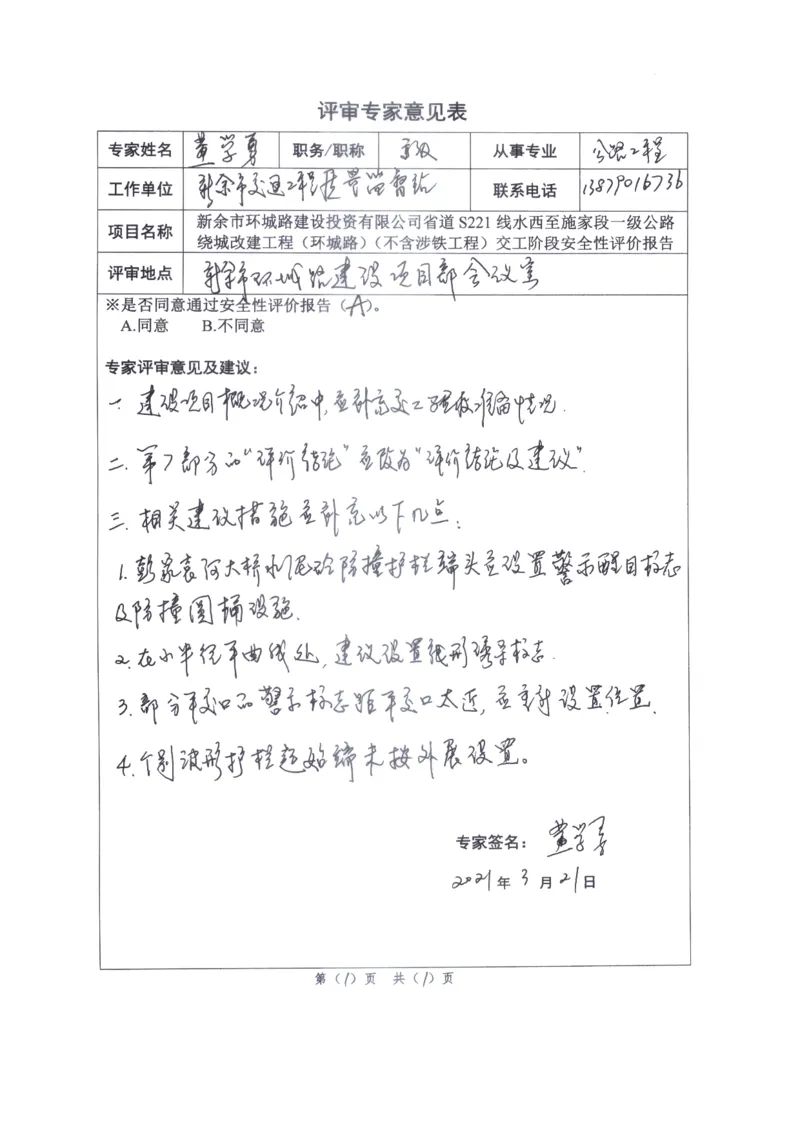 评审专家意见表
专家姓名 黄学勇 职务/职称 高级 从事专业 公路工程
工作单位 新余市交通工程质量监督站 联系电话 13879016736
项目名称 新余市环城路建设投资有限公司省道 S221 线水西至施家段一级公路
绕城改建工程(环城路)(不含涉铁工程)交工阶段安全性评价报告
评审地点 新余市环城路建设项目部会议室
※是否同意通过安全性评价报告(A)。
A.同意 B.不同意
专家评审意见及建议:
一. 建设项目概况介绍中,应补充交工验收准备情况.
二. 第7部分的“评价结论”应改为“评价结论及建议”.
三. 相关建议措施应补充以下几点:
1. 彭家袁河大桥水泥砼防撞护栏端头应设置警示醒目标志
及防撞圆桶设施.
2. 在小半径平曲线处,建议设置线形诱导标志.
3. 部分平交口的警示标志距平交口太近,应重新设置位置.
4. 个别波形护栏起始端未按外展设置。
专家签名: 黄学勇
2021年3月21日
第(1)页 共(1)页